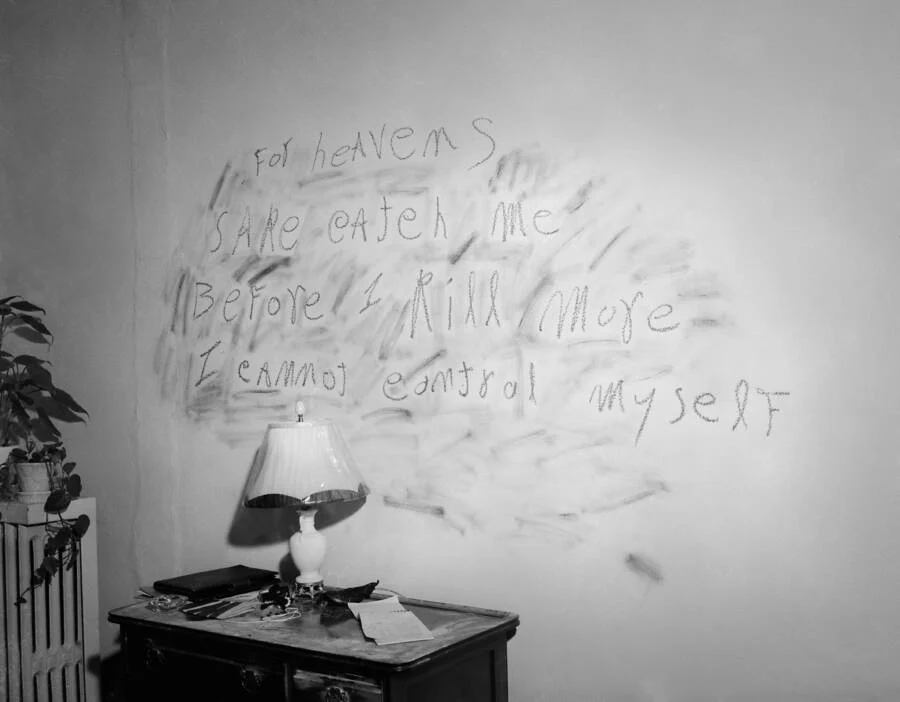 For heAVens
SAKe cAtch Me
BeFore I Kill More
I cannot control MyselF